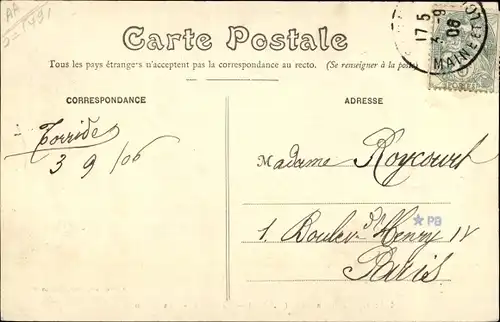 Carte Postale
Tous les pays étrangers n'acceptent pas la correspondance au recto. (Se renseigner à la poste)
CORRESPONDANCE
ADRESSE
Torride
3 9 / 06
Madame Roycourt
1. Boulevd Henry IV
Paris
* PB
17 5
3 - 9
06
MAINE ET LO